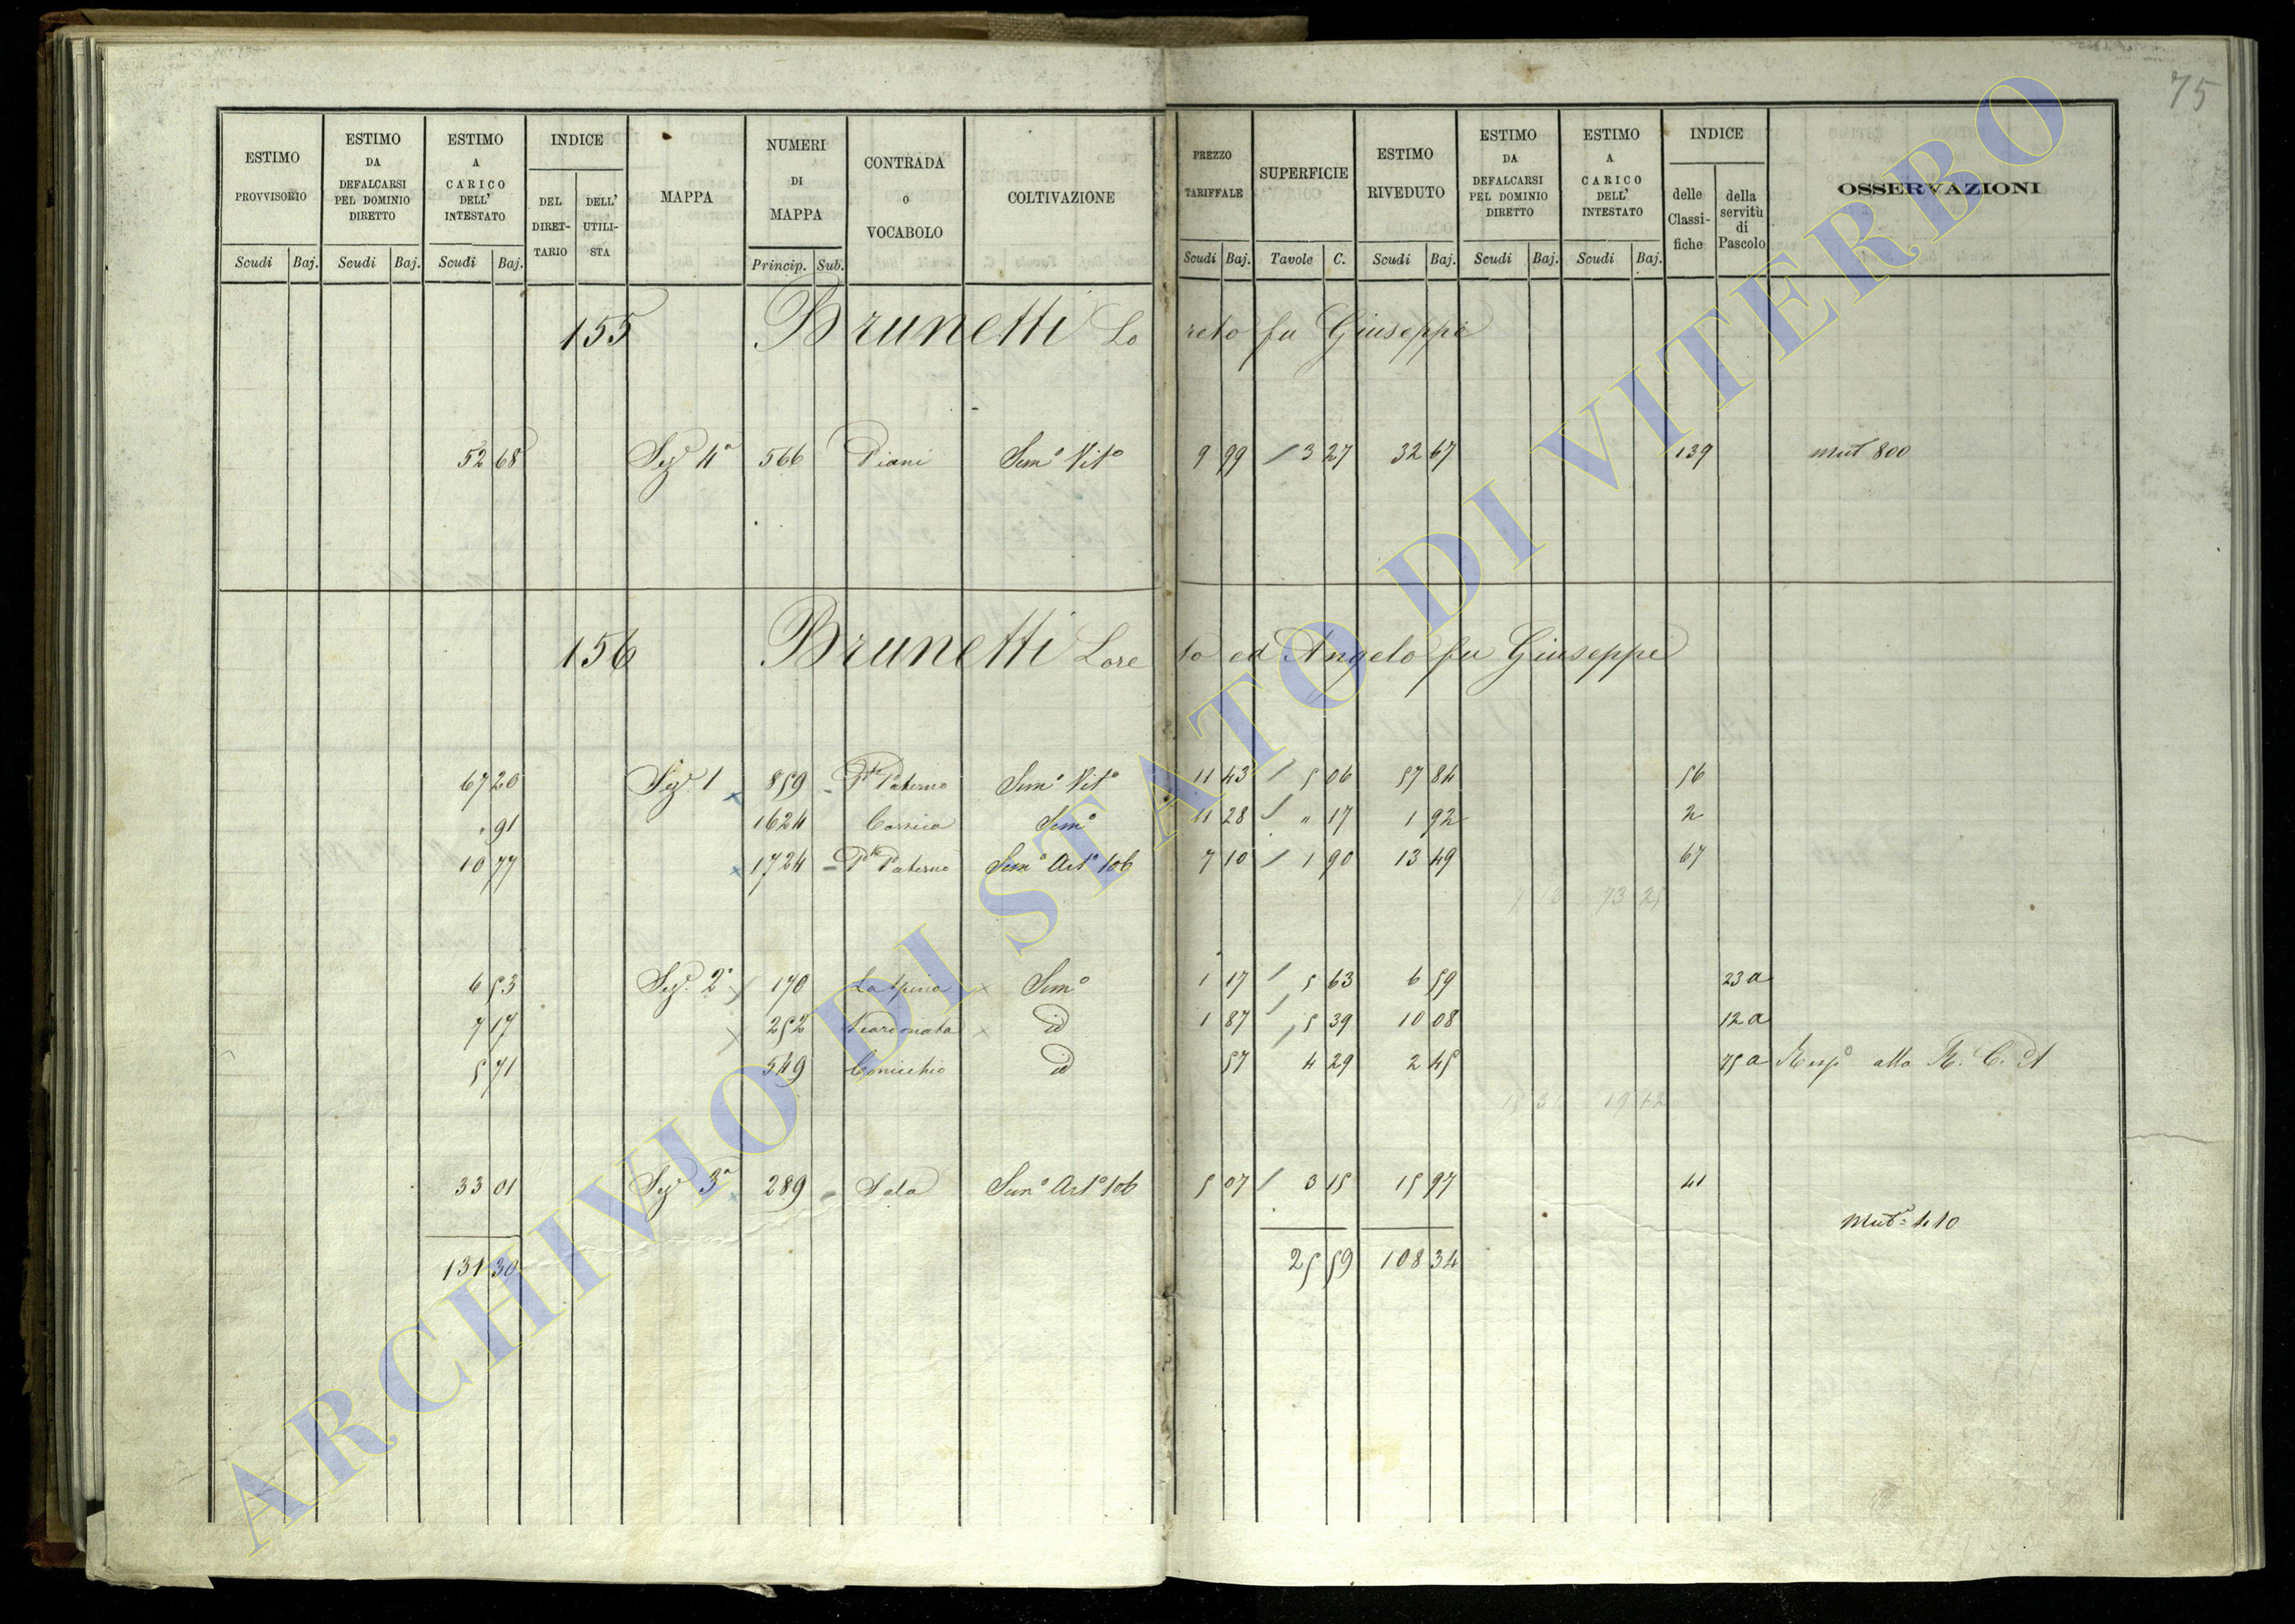 75
ESTIMO PROVVISORIO Scudi Baj.
ESTIMO DA DEFALCARSI PEL DOMINIO DIRETTO Scudi Baj.
ESTIMO A CARICO DELL' INTESTATO Scudi Baj.
INDICE DEL DIRETTARIO DELL' UTILISTA
MAPPA
NUMERI DI MAPPA Princip. Sub.
CONTRADA O VOCABOLO
COLTIVAZIONE
PREZZO TARIFFALE Scudi Baj.
SUPERFICIE Tavole C.
ESTIMO RIVEDUTO Scudi Baj.
ESTIMO DA DEFALCARSI PEL DOMINIO DIRETTO Scudi Baj.
ESTIMO A CARICO DELL' INTESTATO Scudi Baj.
INDICE delle Classifiche della servitù di Pascolo
OSSERVAZIONI
155 Brunetti Loreto fu Giuseppe
52 68 Sezᵉ 4ª 566 Piani Semº Vitº 9 99 / 3 27 32 67 139 mutª 800
156 Brunetti Loreto ed Angelo fu Giuseppe
67 20 Sezᵉ 1 x 859 - Pte Paterno Semº Vitº 11 43 / 5 06 57 84 56
" 91 1624 Semº 11 28 / " 17 1 92 2
10 77 x 1724 = Pte Paterno Semº Artº 106 7 10 / 1 90 13 49 67
73 25
6 53 Sezᵉ 2ª x 170 La Spina x Semº 1 17 / 5 63 6 59 23 a
7 17 x 252 x id 1 87 / 5 39 10 08 12 a
5 71 549 Conicchio id 57 4 29 2 45 75 a alla R. C. A
19 12
33 01 Sezᵉ 3ª x 289 = Sala Semº Artº 106 5 07 / 3 15 15 97 41
mutª = 410
131 30 25 59 108 34
ARCHIVIO DI STATO DI VITERBO